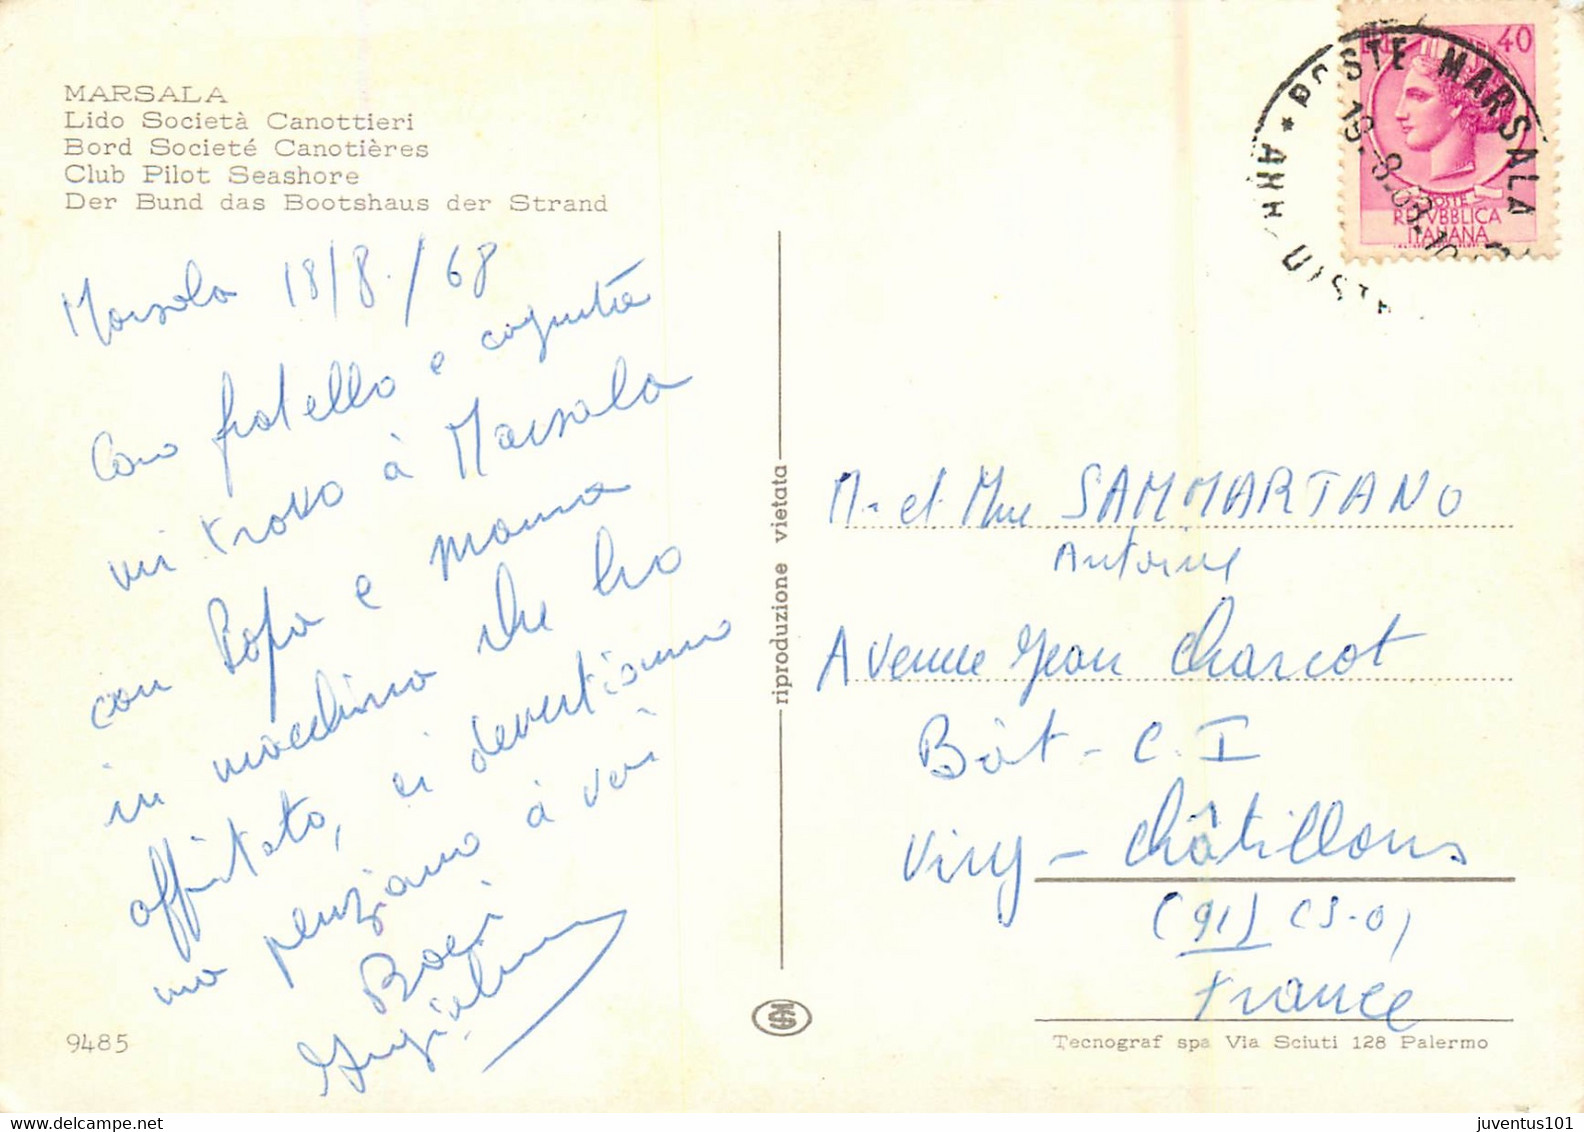 MARSALA
Lido Società Canottieri
Bord Societé Canotières
Club Pilot Seashore
Der Bund das Bootshaus der Strand
Marsala 18/8/68
Con fratello e cognata
mi trovo à Marsala
con Papa e mama
in macchina che ho
affittato, ci devertiamo
ma penziamo à voi
Baci
riproduzione vietata
40
POSTE MARSALA
POSTE
REPVBBLICA
ITALIANA
Mr et Mme SAMMARTANO
Antoine
Avenue Jean Charcot
Bât - C. I
Viry - Châtillons
(91) (S-O)
France
9485
Tecnograf spa Via Sciuti 128 Palermo
juventus101